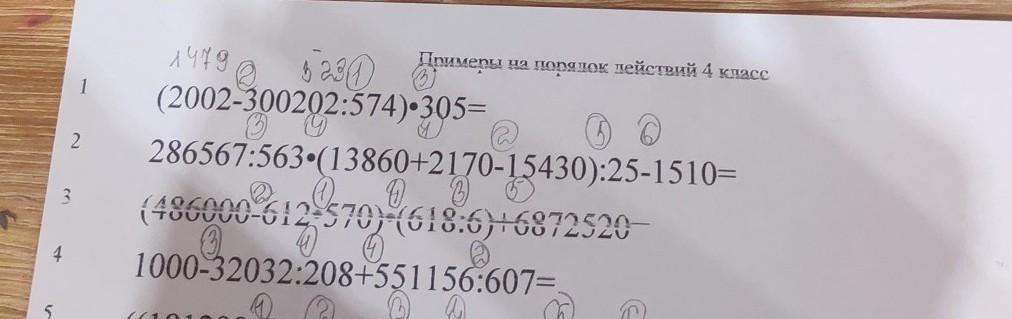 1479 ② 523 ① ③ Примеры на порядок действий 4 класс
1 (2002-300202:574)•305=
③ ④ ① ② ⑤ ⑥
2 286567:563•(13860+2170-15430):25-1510=
② ① ④ ③ ⑤
3 (486000-612•570)•(618:6)+6872520=
③ ① ④ ②
4 1000-32032:208+551156:607=
① ② ③
5